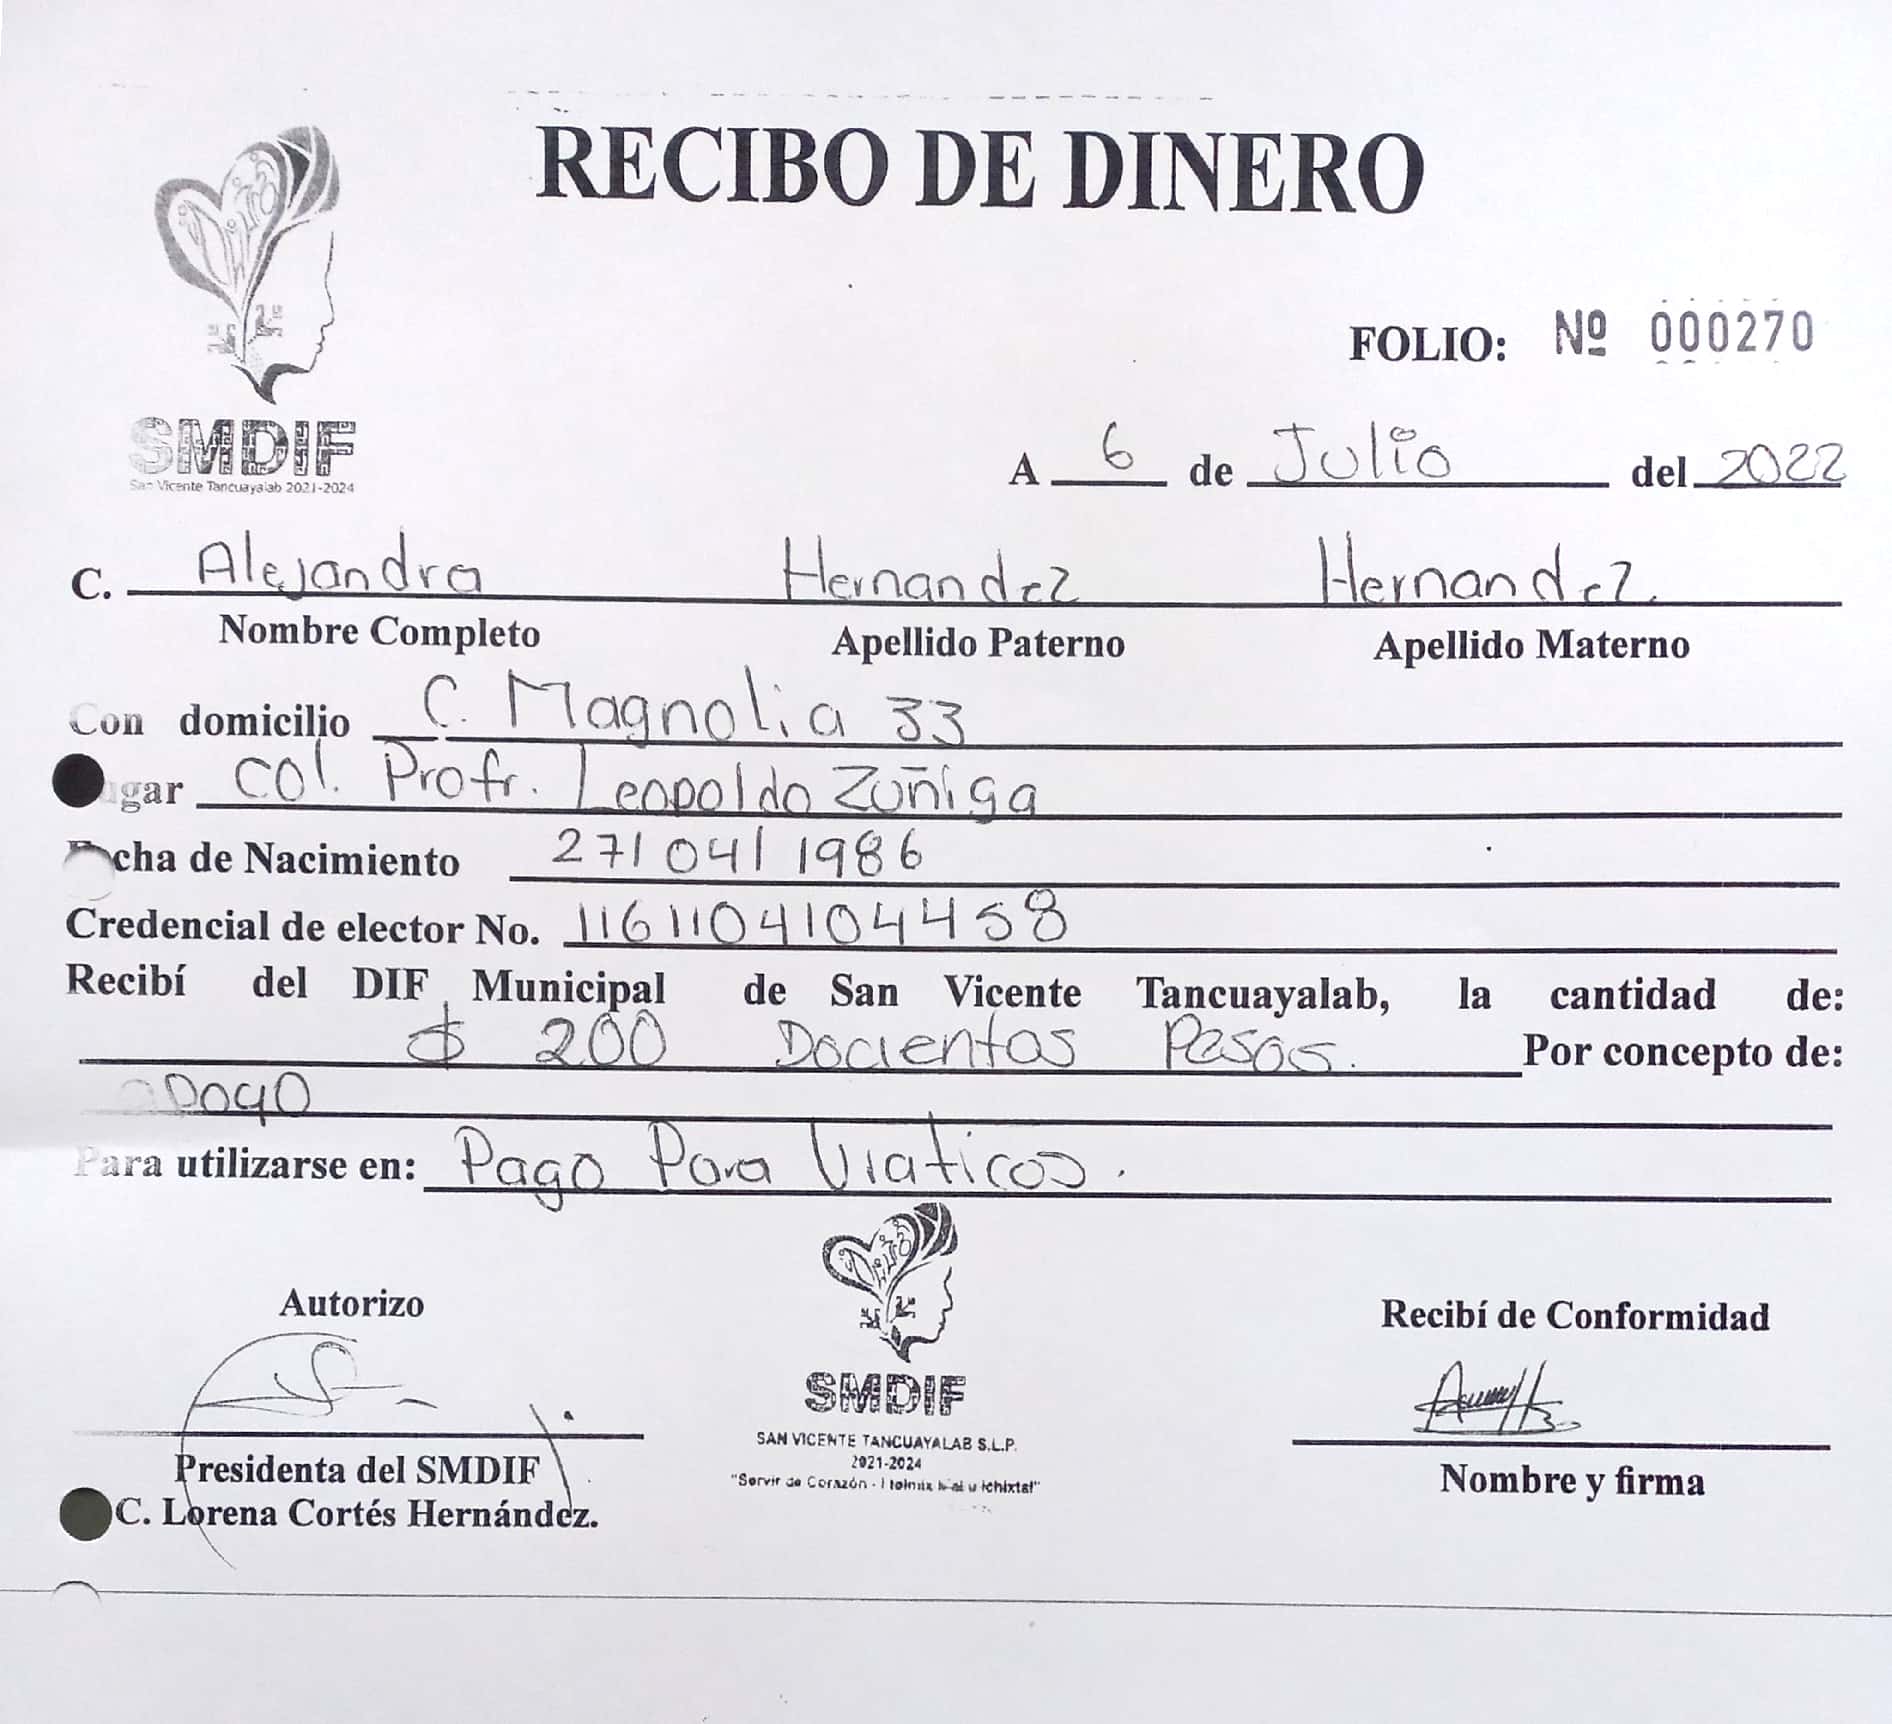 RECIBO DE DINERO
FOLIO: Nº 000270
SMDIF
San Vicente Tancuayalab 2021-2024
A 6 de Julio del 2022
C. Alejandra Hernandez Hernandez
Nombre Completo Apellido Paterno Apellido Materno
Con domicilio C. Magnolia 33
gar Col. Profr. Leopoldo Zuñiga
Fecha de Nacimiento 27/04/1986
Credencial de elector No. 1161104104458
Recibí del DIF Municipal de San Vicente Tancuayalab, la cantidad de:
$ 200 Docientos Pesos. Por concepto de:
apoyo
Para utilizarse en: Pago Para Viaticos.
Autorizo
Recibí de Conformidad
SMDIF
SAN VICENTE TANCUAYALAB S.L.P.
2021-2024
"Servir de Corazón -
Presidenta del SMDIF
Nombre y firma
C. Lorena Cortés Hernández.